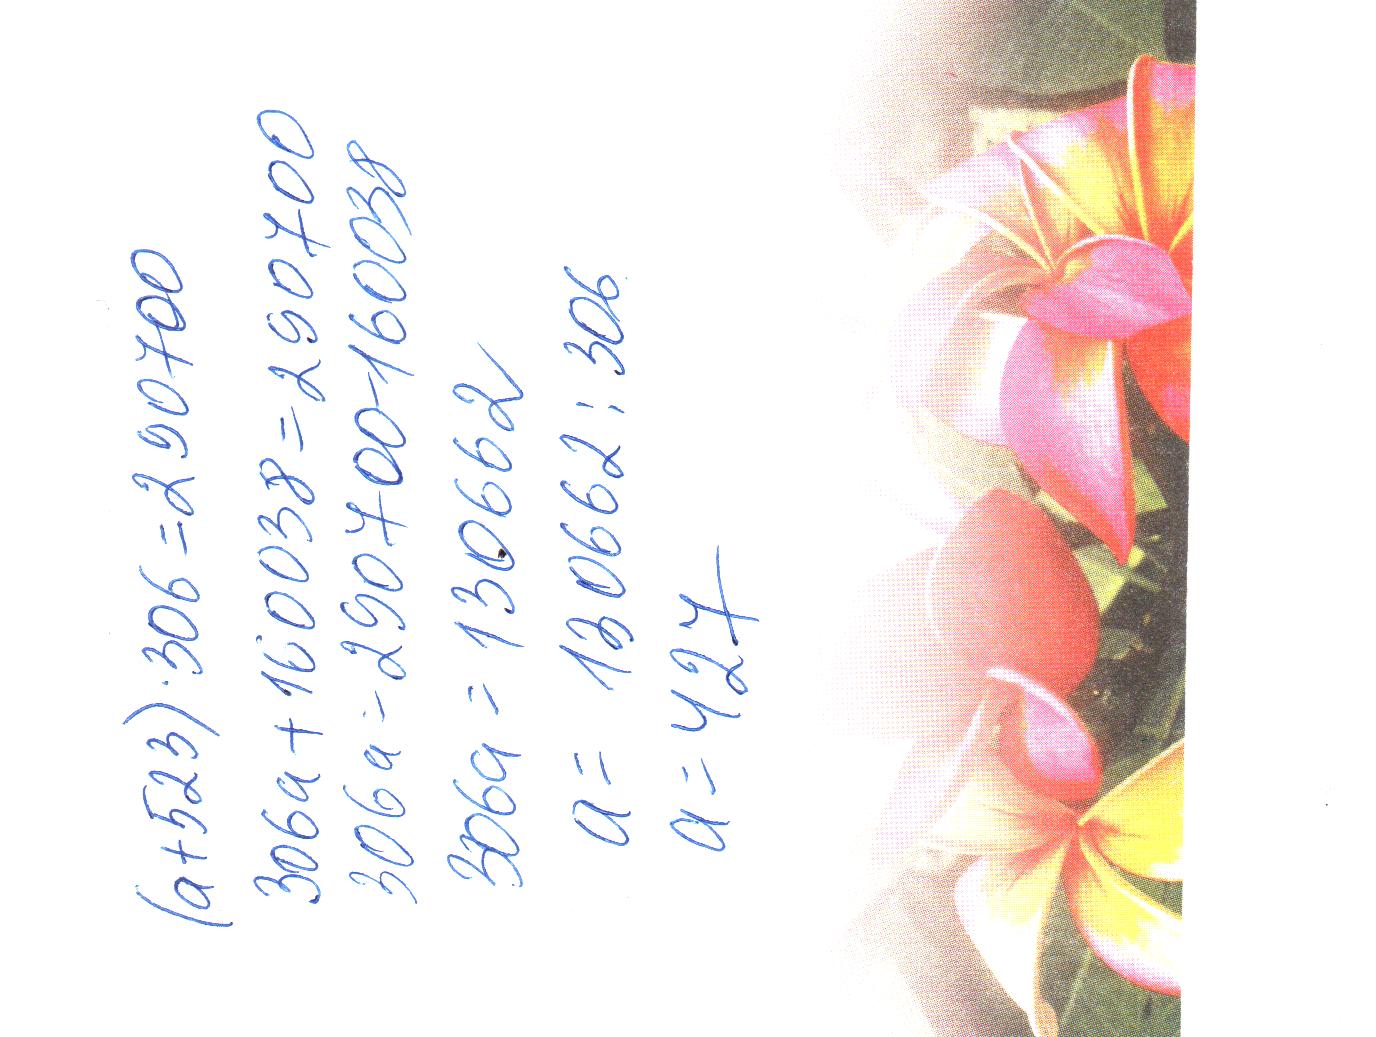 (a+523)·306=290700
306a+160038=290700
306a=290700-160038
306a=130662
a= 130662:306
a=427